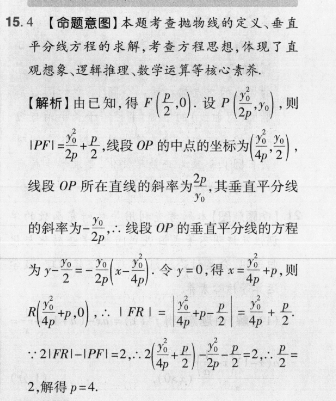 15.4 【命题意图】本题考查抛物线的定义、垂直
平分线方程的求解,考查方程思想,体现了直
观想象、逻辑推理、数学运算等核心素养.
【解析】由已知,得 F(p/2,0). 设 P(y₀²/2p,y₀),则
|PF|=y₀²/2p+p/2,线段 OP 的中点的坐标为(y₀²/4p,y₀/2),
线段 OP 所在直线的斜率为2p/y₀,其垂直平分线
的斜率为-y₀/2p,∴ 线段 OP 的垂直平分线的方程
为 y-y₀/2=-y₀/2p(x-y₀²/4p). 令 y=0,得 x=y₀²/4p+p,则
R(y₀²/4p+p,0),∴ |FR|=|y₀²/4p+p-p/2|=y₀²/4p+p/2.
∵2|FR|-|PF|=2,∴2(y₀²/4p+p/2)-y₀²/2p-p/2=2,∴p/2=
2,解得 p=4.